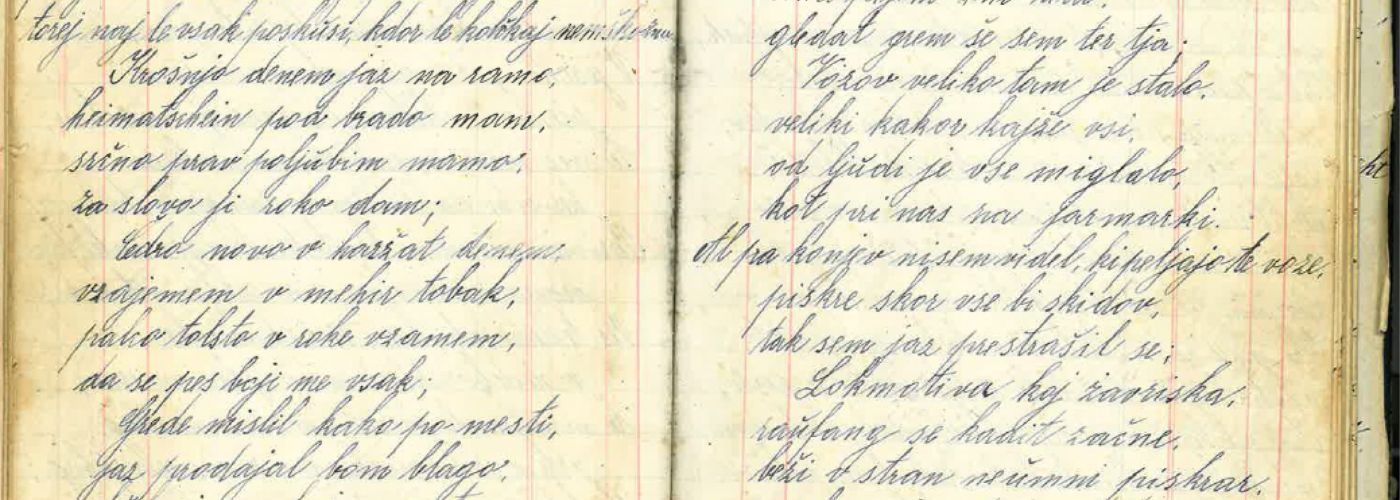 torej naj le vsak poskusi, kdor le kolčkaj nemški zna
Krošnjo denem jaz na ramo,
heimatschein pod brado mam,
srčno prav poljubim mamo,
za slovo ji roko dam;
Cedro novo v haržat denem,
vzajemem v mehir tobak,
palco tolsto v roke vzamem,
da se pes boji me vsak;
Grede mislil kako po mesti,
jaz prodajal bom blago,
gledat grem še sem ter tja;
Vozov veliko tam je stalo,
veliki kakor kajže vsi,
od ljudi je vse miglalo,
kot pri nas na jarmarki.
Al pa konjev nisem videl, ki peljajo te voze,
piskre skor vse bi skidov,
tak sem jaz prestrašil se;
Lokmotiva koj zavriska,
raufang se kadit začne,
beži v stran neumni piskrar,